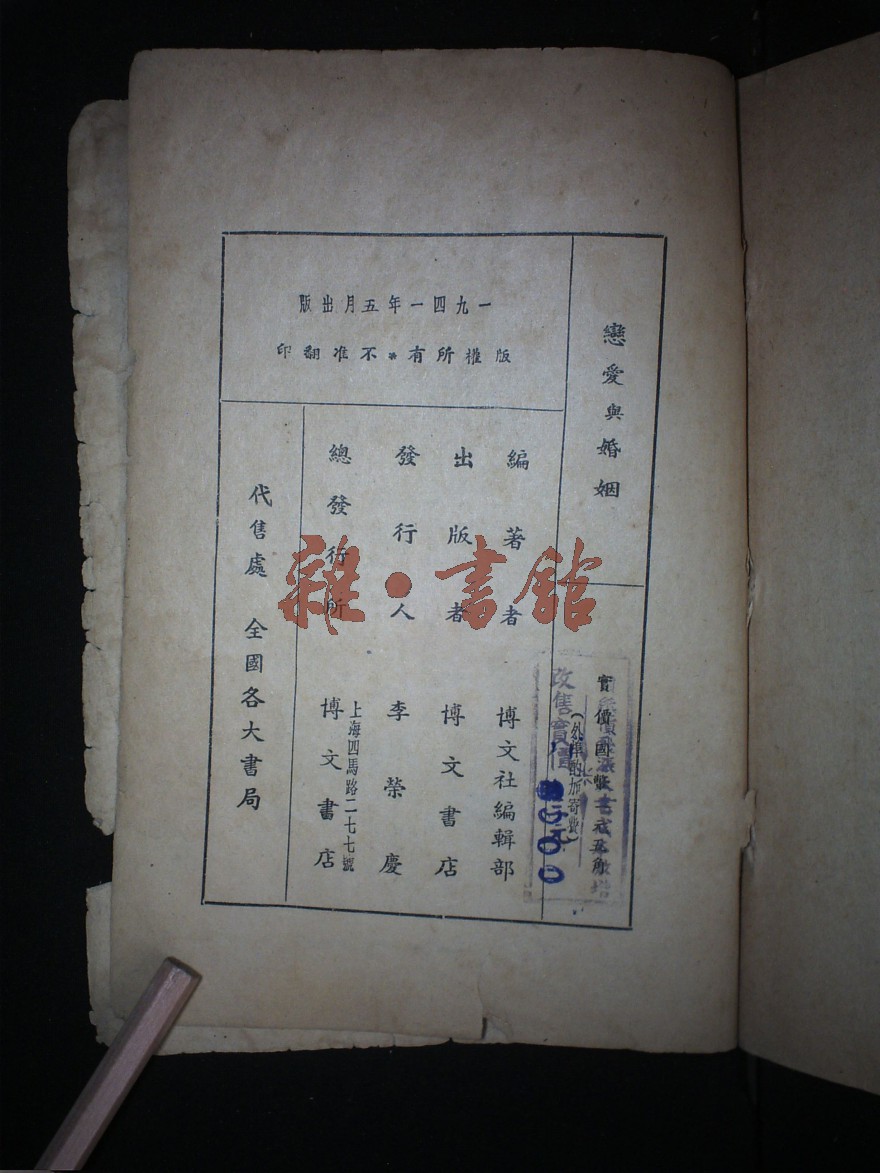 戀愛與婚姻
實價國幣
(外埠酌加寄費)
改售實價
一九四一年五月出版
版權所有*不准翻印
編著者 博文社編輯部
出版者 博文書店
發行人 李榮慶
總發行所 上海四馬路二七七號
博文書店
代售處 全國各大書局
雜·書館